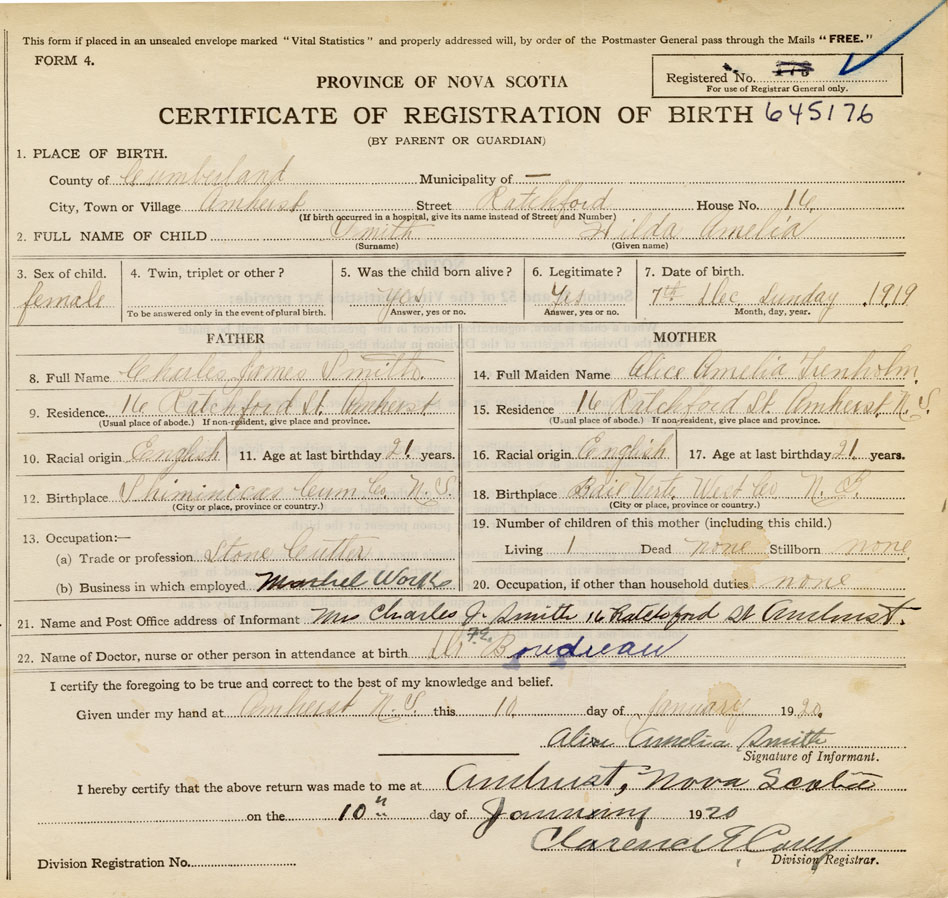 This form if placed in an unsealed envelope marked "Vital Statistics" and properly addressed will, by order of the Postmaster General pass through the Mails "FREE."
FORM 4.
Registered No.
For use of Registrar General only.
PROVINCE OF NOVA SCOTIA
CERTIFICATE OF REGISTRATION OF BIRTH 645176
(BY PARENT OR GUARDIAN)
1. PLACE OF BIRTH.
County of Cumberland Municipality of —
City, Town or Village Amherst Street Ratchford House No. 16
(If birth occurred in a hospital, give its name instead of Street and Number)
2. FULL NAME OF CHILD Smith Hilda Amelia
(Surname) (Given name)
3. Sex of child. 4. Twin, triplet or other? 5. Was the child born alive? 6. Legitimate? 7. Date of birth.
female yes Yes 7th Dec Sunday 1919
To be answered only in the event of plural birth. Answer, yes or no. Answer, yes or no. Month, day, year.
FATHER MOTHER
8. Full Name Charles James Smith 14. Full Maiden Name Alice Amelia Trenholm
9. Residence. 16 Ratchford St. Amherst 15. Residence 16 Ratchford St. Amherst N. S
(Usual place of abode.) If non-resident, give place and province. (Usual place of abode.) If non-resident, give place and province.
10. Racial origin English 11. Age at last birthday 21 years. 16. Racial origin English 17. Age at last birthday 21 years.
12. Birthplace Shiminicas Cum Co. N. S. 18. Birthplace Baie Verte West Co N. B.
(City or place, province or country.) (City or place, province or country.)
13. Occupation:— 19. Number of children of this mother (including this child.)
(a) Trade or profession Stone Cutter Living 1 Dead none Stillborn none
(b) Business in which employed Marbel Works 20. Occupation, if other than household duties none
21. Name and Post Office address of Informant Mrs Charles J. Smith 16 Ratchford St Amherst.
22. Name of Doctor, nurse or other person in attendance at birth Dr Boudreau
I certify the foregoing to be true and correct to the best of my knowledge and belief.
Given under my hand at Amherst N. S. this 10 day of January 1920.
Alice Amelia Smith
Signature of Informant.
I hereby certify that the above return was made to me at Amherst, Nova Scotia
on the 10 day of January 1920
Clarence
Division Registrar.
Division Registration No.